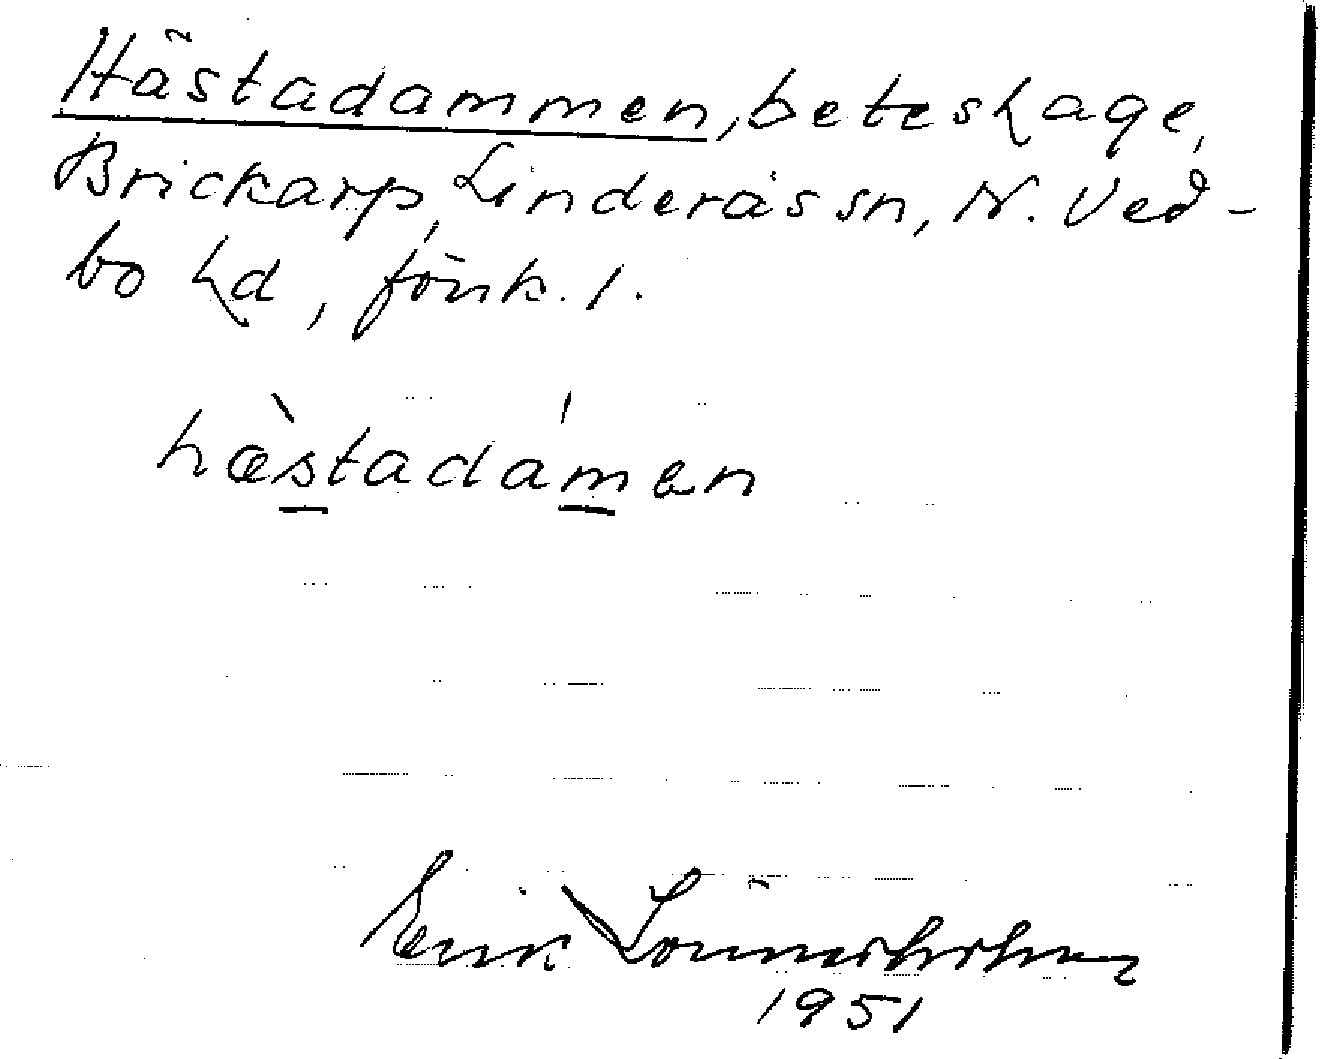 Hästadammen, beteshage,
Brickarp, Linderås sn, N. Ved-
bo hd, Jönk. l.
hæ̀stadámen
Erik Lönnerholm
1951